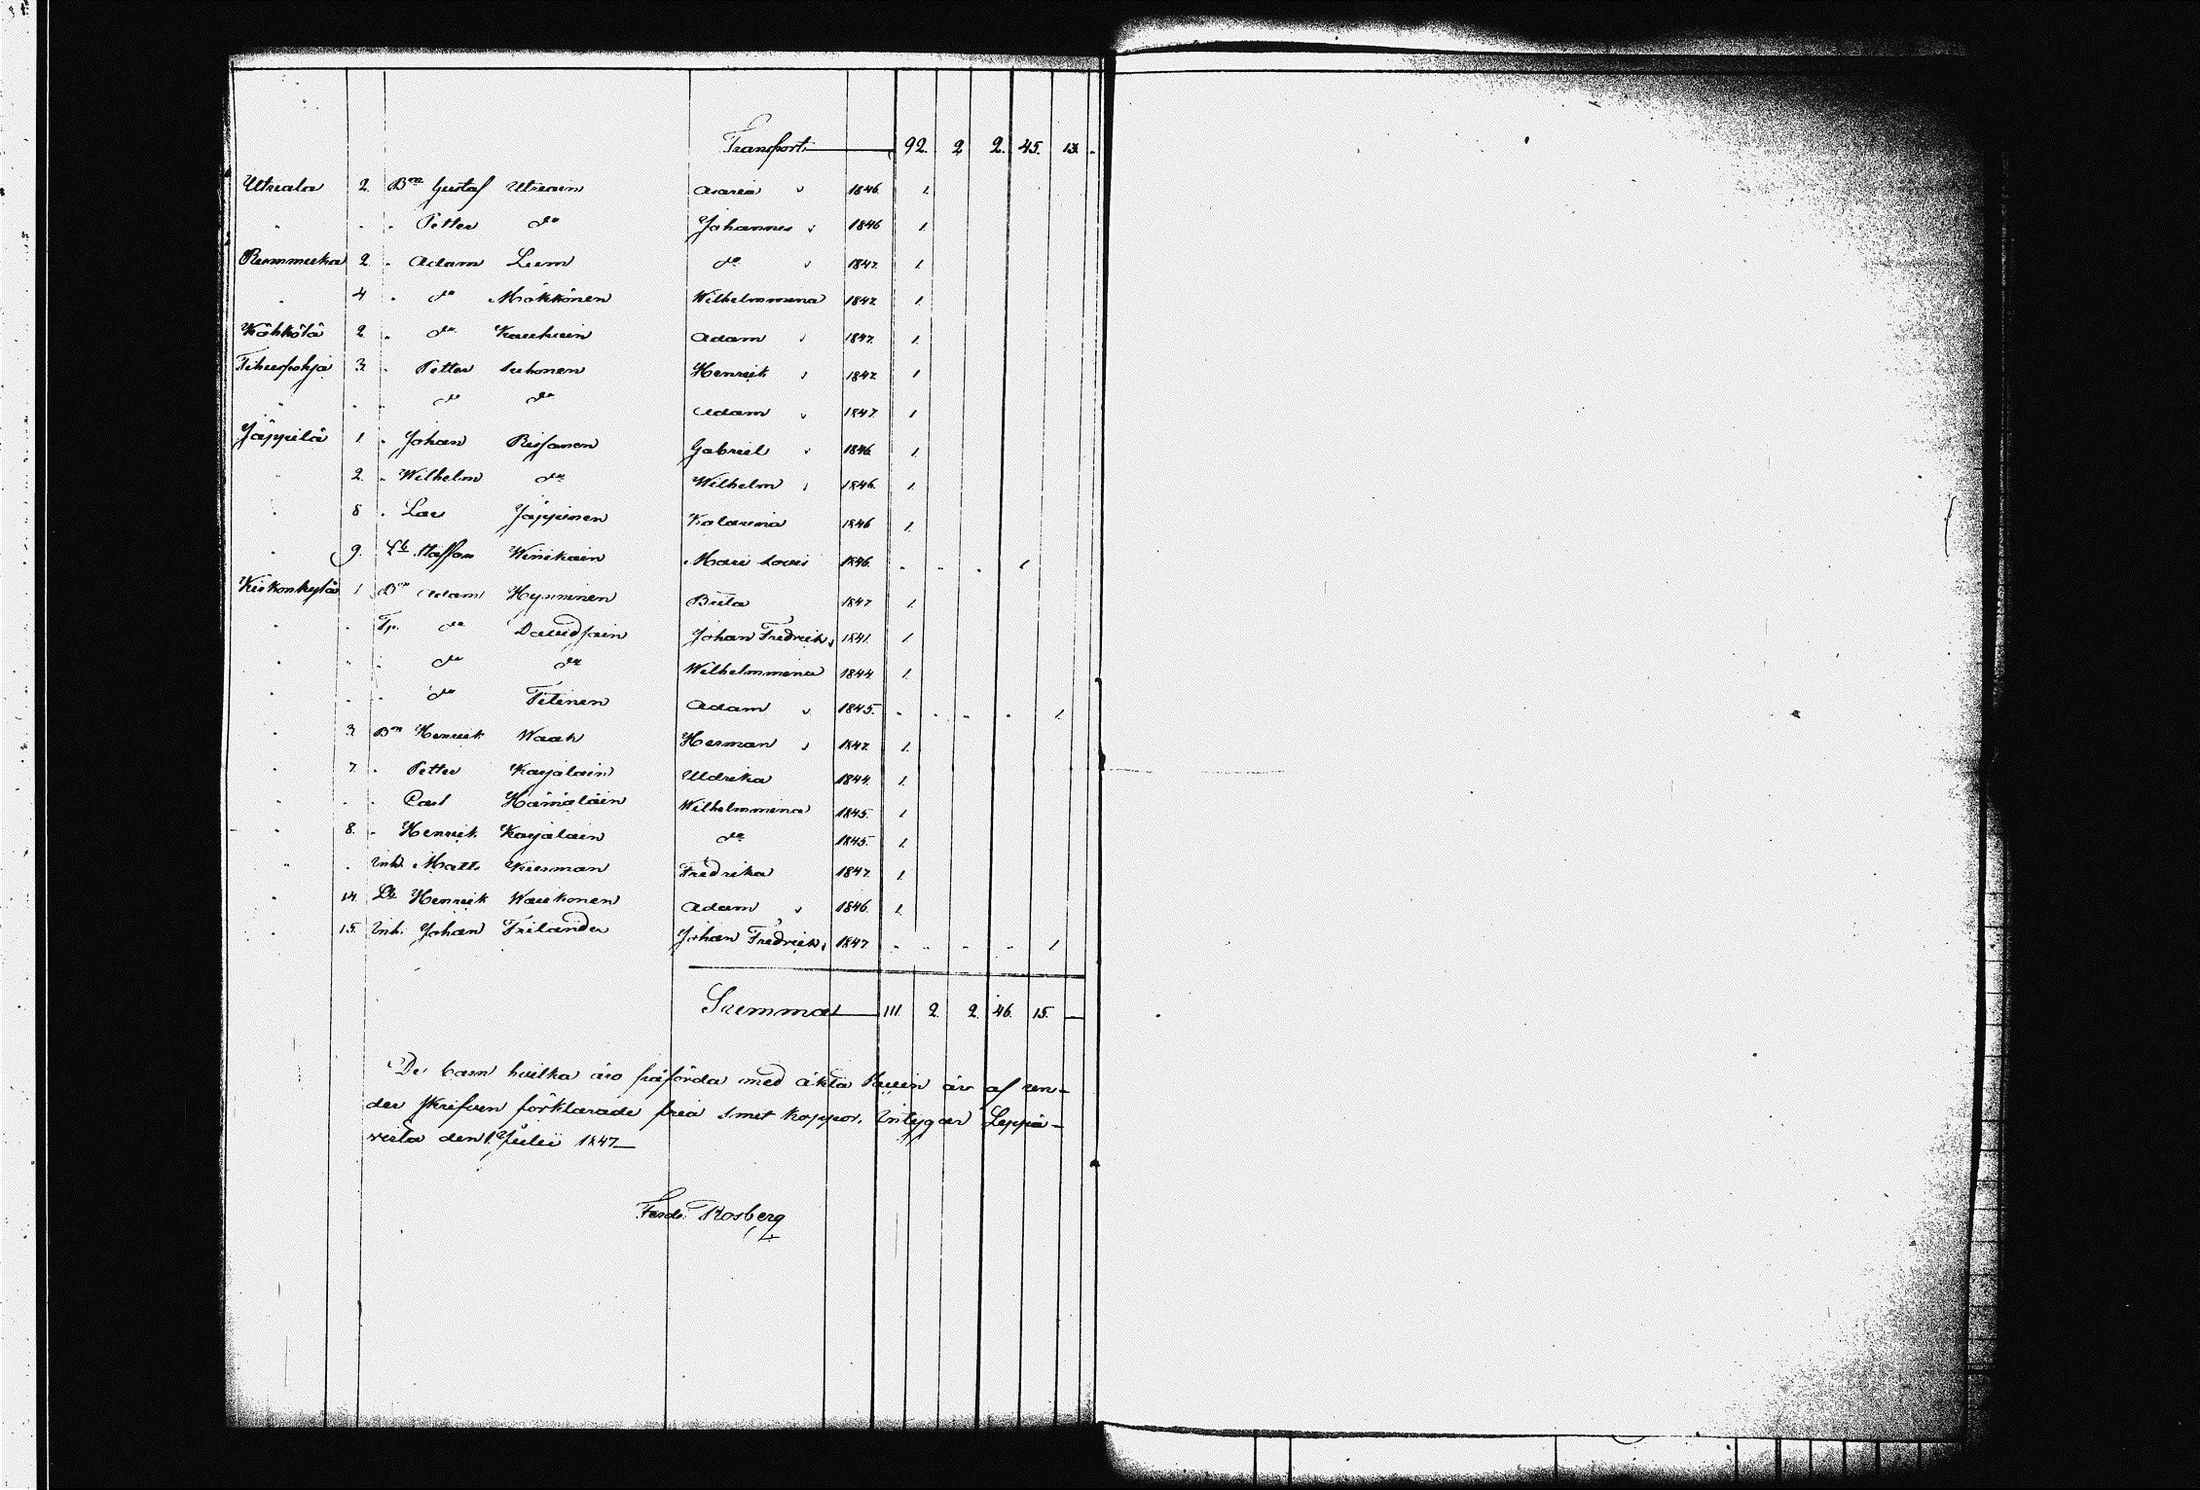 Transport 92. 2 2. 45. 13.
Utriala 2. Bn Gustaf Utriain Asaria 1846. 1.
" " " Petter do Johannes 1846 1.
2. " Adam Leem do 1847. 1.
" 4 " do Mökkönen Wilhelmmina 1847. 1.
Köhkölä 2. " do Kauhain Adam 1847. 1.
Tihuspohja 3. " Petter Suhonen Henrik 1847. 1
" " " do do Adam 1847. 1
Jäppilä 1 " Johan Rissanen Gabriel 1846 1.
" 2. " Wilhelm do Wilhelm 1846. 1.
" 8 " Lars Jäppinen Katarina 1846 1.
" 9. Staffan Winikain Mari Lovis 1846. " " " 1
Kirkonkylä 1 Bn Adam Hynninen Brita 1847 1.
" " Tp. do Davidsain Johan Fredrik 1841. 1
" " " do do Wilhelmmina 1844 1.
" " " do Titinen Adam 1845. " " " " 1.
" 3. Bn Henrik Waak Herman 1847. 1.
" 7. " Petter Karjalain Uldrika 1844. 1.
" " " Carl Hämäläin Wilhelmmina 1845. 1
" 8. " Henrik Karjalain do 1845. 1.
" " Inh. Matts Fredrika 1847. 1.
" 14. Henrik Waukonen Adam 1846. 1.
" 15. Inh. Johan Frilander Johan Fredrik 1847 " " " " 1
Summa 111. 2. 2. 46. 15. —
De barn hvilka äro påförda med äkta äro af un-
der skrifven förklarade fria smit koppor, intygar Leppä-
virta den 1 Julii 1847—
Ferd: Rosberg